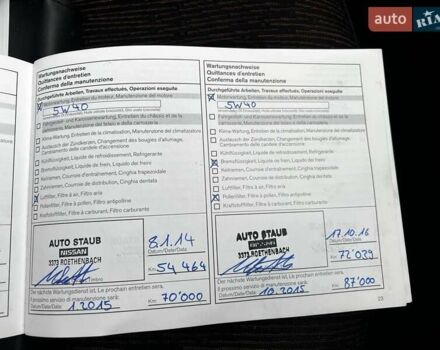 auto RIA
Wartungsnachweise
Quittances d'entretien
Conferma della manutenzione
Durchgeführte Arbeiten, Travaux effectués, Operazioni eseguite
Motorwartung, Entretien du moteur, Manutenzione del motore
5W40
Fahrgestell- und Karosseriewartung, Entretien du châssis et de la
carrosserie, Manutenzione del telaio e della carrozzeria
Klima-Wartung, Entretien de la climatisation, Manutenzione del climatizzatore
Austausch der Zündkerzen, Changement des bougies d'allumage,
Cambiamento delle candele d'accensione
Kühlflüssigkeit, Liquide de refroidissement, Refrigerante
Bremsflüssigkeit, Liquide de frein, Liquido dei freni
Keilriemen, Courroie de distribution, Cinghia trapezoidale
Zahnriemen, Courroie de distribution, Cinghia dentata
Luftfilter, Filtre à air, Filtro aria
Pollenfilter, Filtre à pollen, Filtro antipolline
Kraftstofffilter, Filtre à carburant, Filtro carburante
AUTO STAUB
NISSAN
3373 ROETHENBACH
8.1.14
Datum/Date/Data
Km: 54 464
Der nächste Wartungsdienst ist, Le prochain entretien sera,
Il prossimo servizio di manutenzione sarà:
1.2015
Datum/Date/Data
Km: 70'000
Wartungsnachweise
Quittances d'entretien
Conferma della manutenzione
Durchgeführte Arbeiten, Travaux effectués, Operazioni eseguite
Motorwartung, Entretien du moteur, Manutenzione del motore
5W40
Fahrgestell- und Karosseriewartung, Entretien du châssis et de la
carrosserie, Manutenzione del telaio e della carrozzeria
Klima-Wartung, Entretien de la climatisation, Manutenzione del climatizzatore
Austausch der Zündkerzen, Changement des bougies d'allumage,
Cambiamento delle candele d'accensione
Kühlflüssigkeit, Liquide de refroidissement, Refrigerante
Bremsflüssigkeit, Liquide de frein, Liquido dei freni
Keilriemen, Courroie de distribution, Cinghia trapezoidale
Zahnriemen, Courroie de distribution, Cinghia dentata
Luftfilter, Filtre à air, Filtro aria
Pollenfilter, Filtre à pollen, Filtro antipolline
Kraftstofffilter, Filtre à carburant, Filtro carburante
AUTO STAUB
NISSAN
3373 ROETHENBACH
17.10.16
Datum/Date/Data
72'029
Km:
Der nächste Wartungsdienst ist, Le prochain entretien sera,
Il prossimo servizio di manutenzione sarà:
10.2015
Datum/Date/Data
Km: 87'000
23